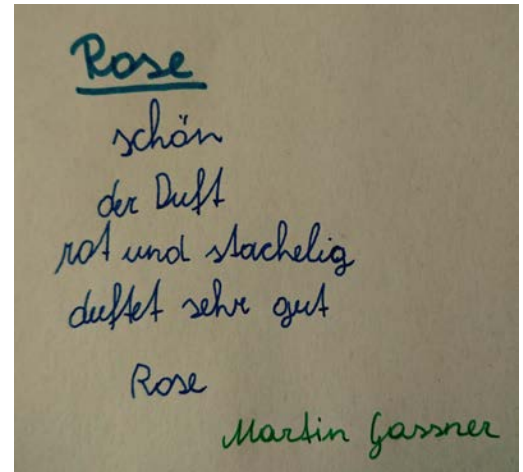 Rose
schön
der Duft
rot und stachelig
duftet sehr gut
Rose
Martin Gassner